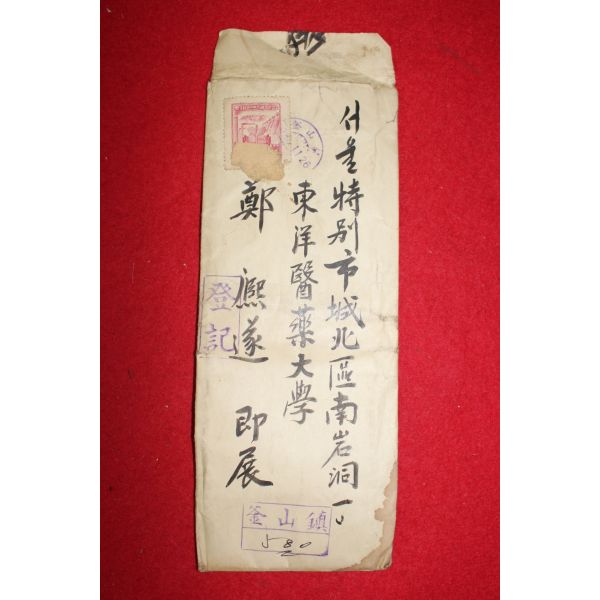 서울特别市城北區南岩洞一〇
東洋醫藥大學
鄭 熙遂 即展
登記
釜山鎮
580